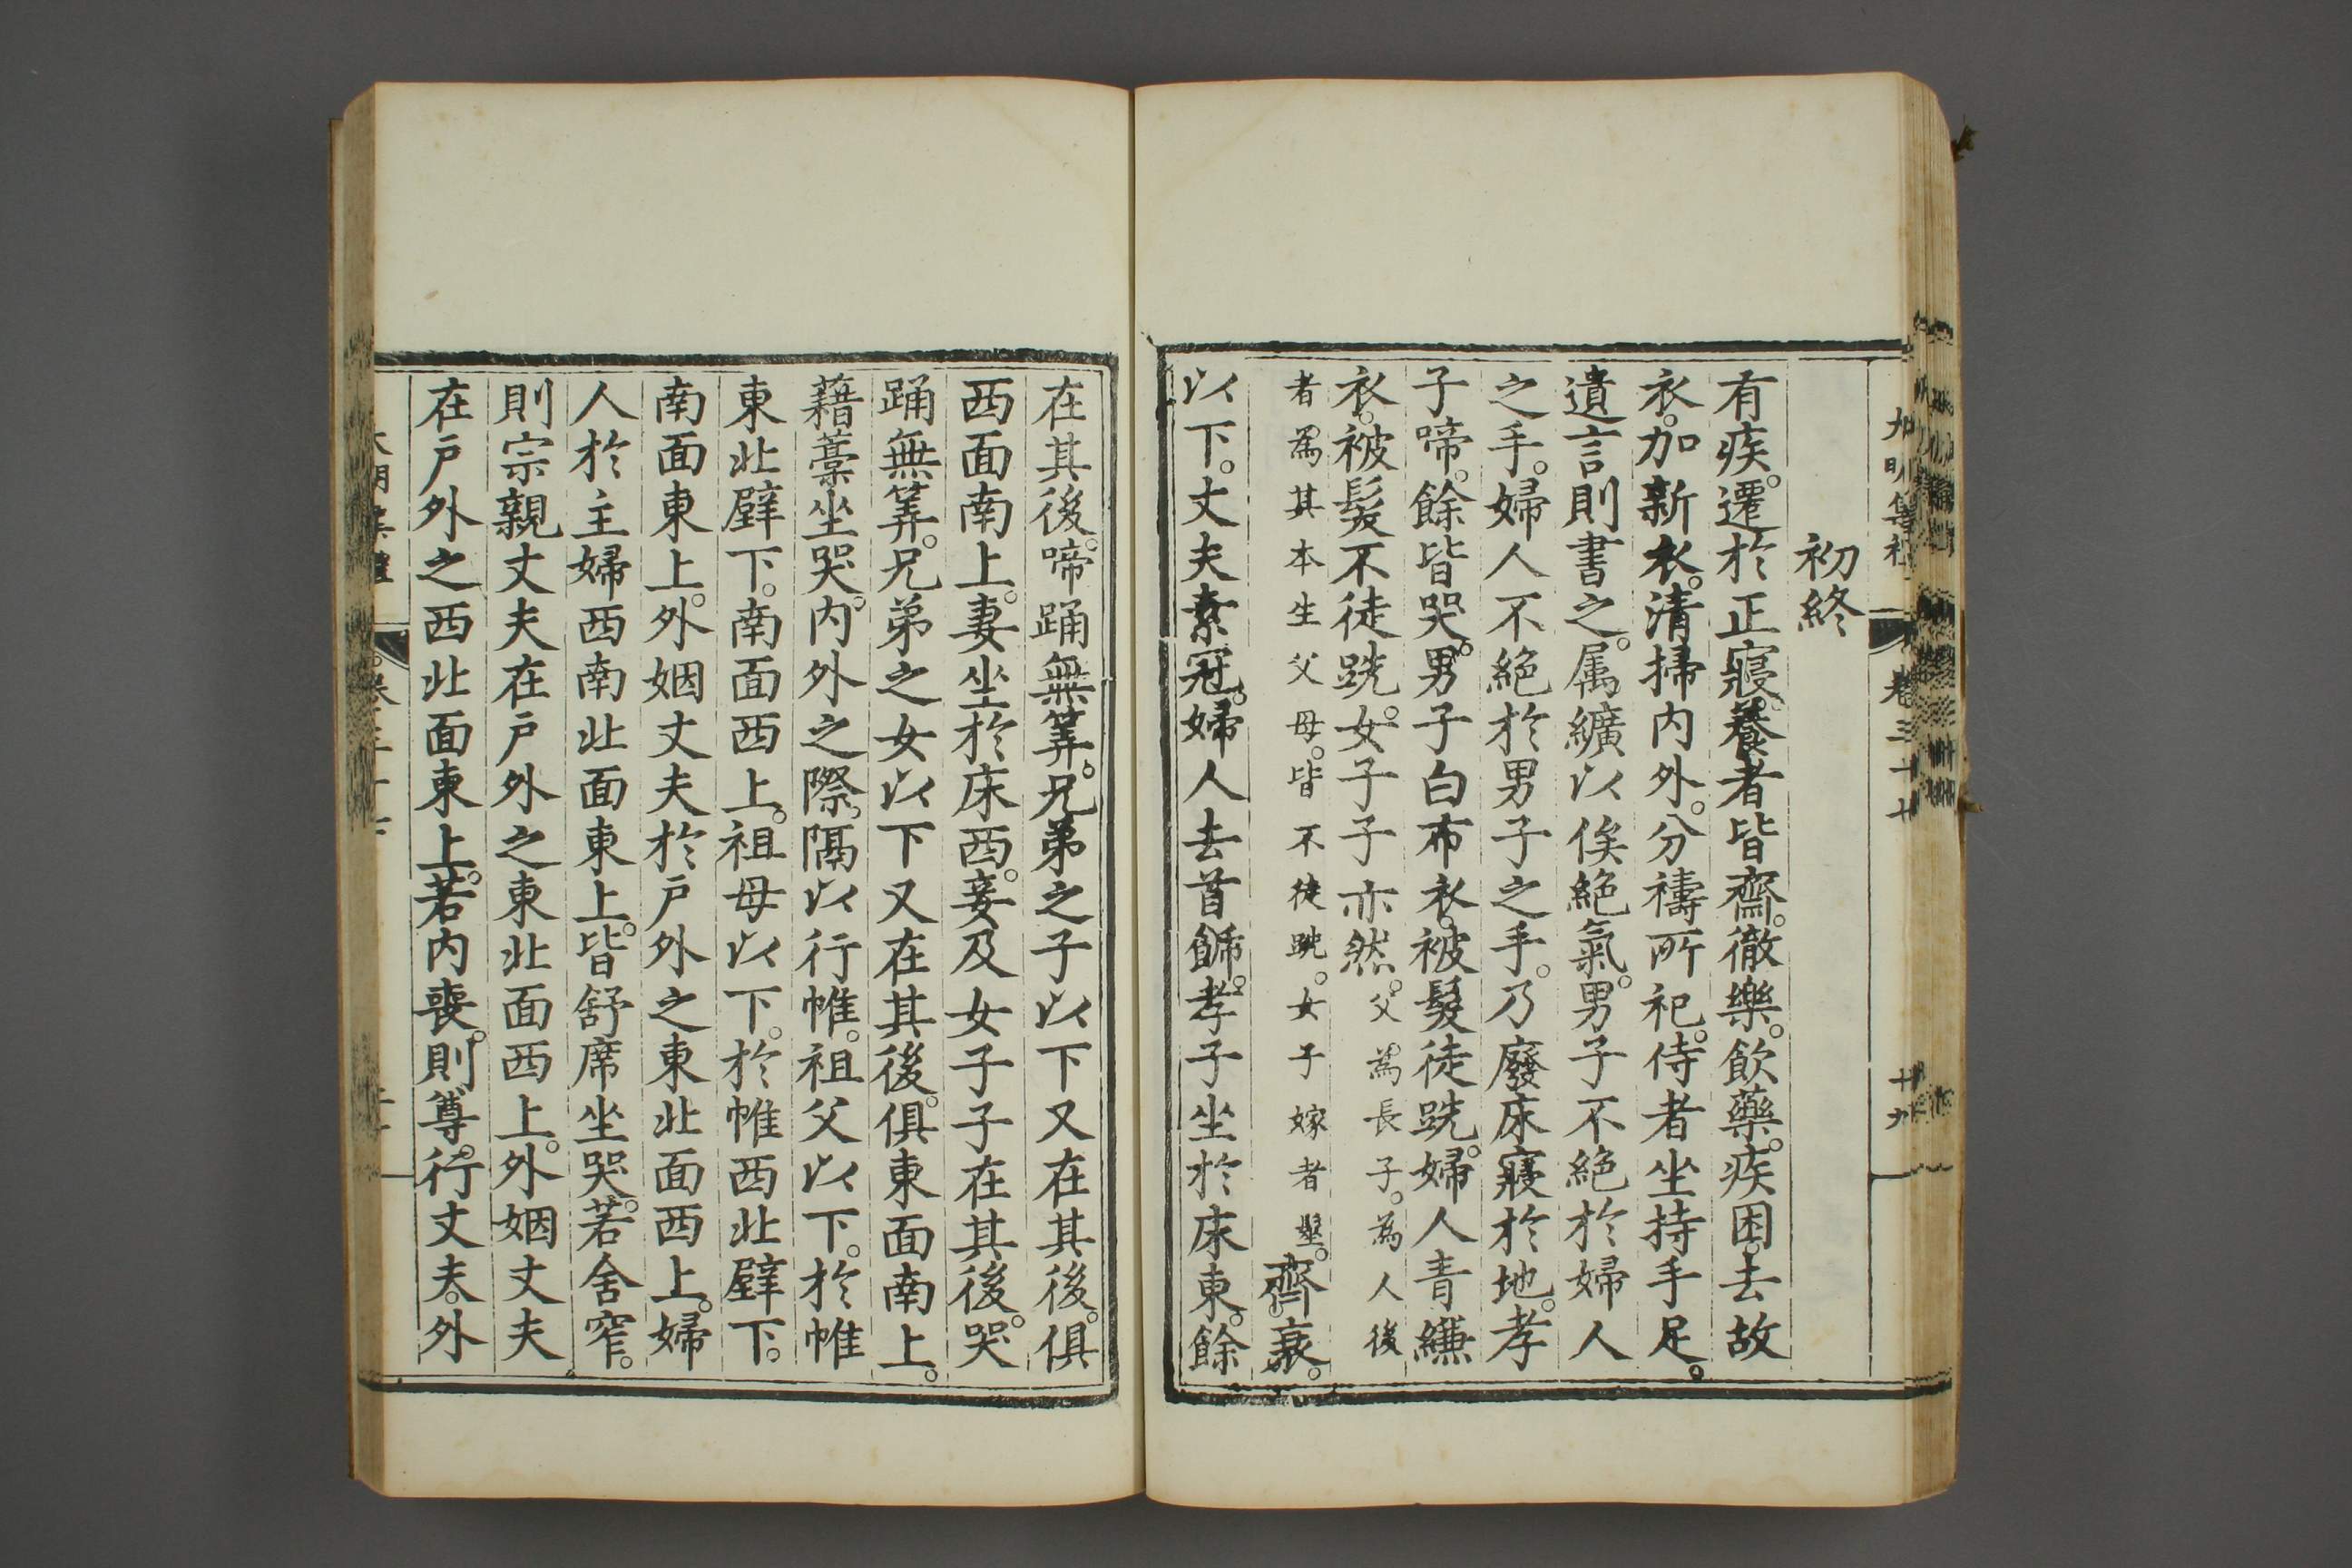 初終
有疾。遷於正寢。養者皆齋。徹樂。飲藥。疾困。去故
衣。加新衣。清掃內外。分禱所祀。侍者坐持手足。
遺言則書之。属纊以俟絕氣。男子不絕於婦人
之手。婦人不絕於男子之手。乃廢床寢於地。孝
子啼。餘皆哭。男子白布衣。被髮徒跣。婦人青縑
衣。被髮不徒跣。女子子亦然。父為長子。為人後
者為其本生父母。皆不徒跣。女子嫁者髽。齊衰。
以下。丈夫素冠。婦人去首飾。孝子坐於床東。餘
在其後。啼踊無筭。兄弟之子以下又在其後。俱
西面南上。妻坐於床西。妾及女子子在其後。哭
踊無筭。兄弟之女以下又在其後。俱東面南上。
藉藁坐哭。内外之際。隔以行帷。祖父以下。於帷
東北壁下。南面西上。祖母以下。於帷西北壁下。
南面東上。外姻丈夫於戶外之東北面西上。婦
人於主婦西南北面東上。皆舒席坐哭。若舍窄。
則宗親丈夫在戶外之東北面西上。外姻丈夫
在戶外之西北面東上。若内喪。則尊。行丈夫。外